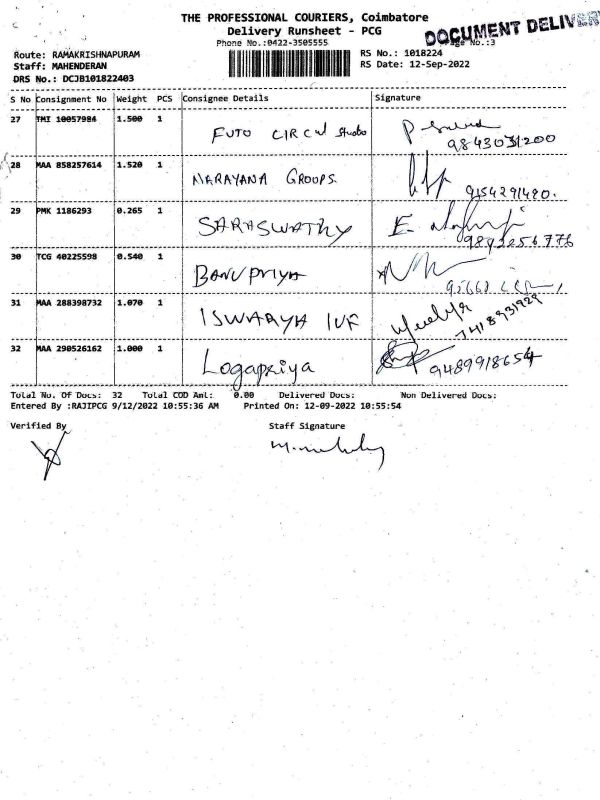 THE PROFESSIONAL COURIERS, Coimbatore
Delivery Runsheet - PCG
DOCUMENT DELIVER
Phone No.:0422-3505555
No.:3
Route: RAMAKRISHNAPURAM
RS No.: 1018224
Staff: MAHENDERAN
RS Date: 12-Sep-2022
DRS No.: DCJB101822403
S No Consignment No Weight PCS Consignee Details Signature
27 TMI 10057984 1.500 1 FUTO CIRCW Studio
9843031200
28 MAA 858257614 1.520 1 NARAYANA GROUPS.
9154291490.
29 PMK 1186293 0.265 1 SARASWATHY
9893256776
30 TCG 40225598 0.540 1 BANUPRIYA
31 MAA 288398732 1.070 1 ISWARYA IVF
7418931929
32 MAA 290526162 1.000 1 Logapriya
9489918654
Total No. Of Docs: 32 Total COD Amt: 0.00 Delivered Docs: Non Delivered Docs:
Entered By :RAJIPCG 9/12/2022 10:55:36 AM Printed On: 12-09-2022 10:55:54
Verified By Staff Signature